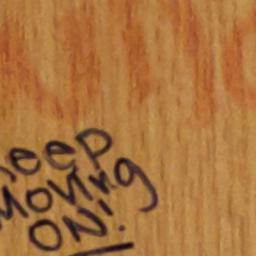 eep
Moving
ON!